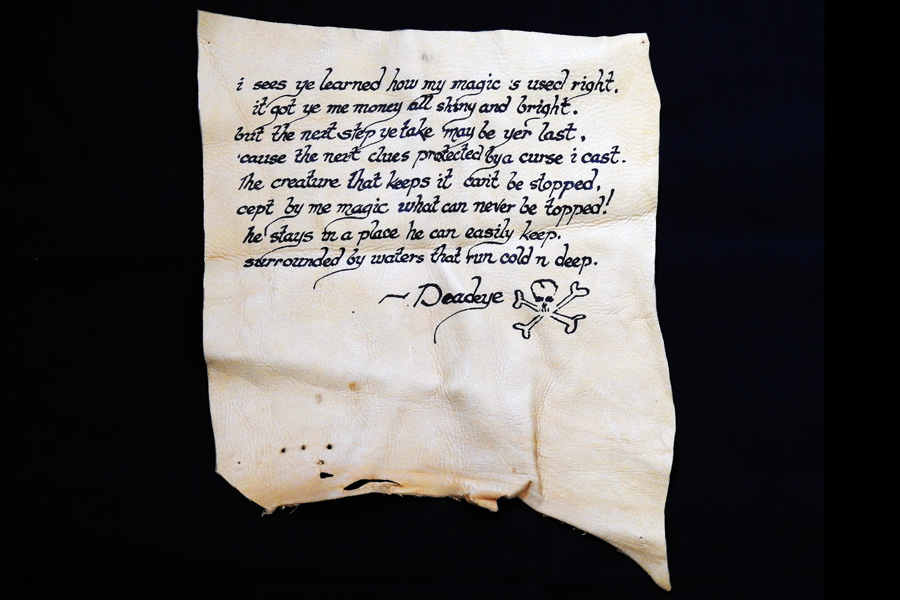 i sees ye learned how my magic 's used right,
it got ye me money all shiny and bright.
but the next step ye take may be yer last,
'cause the next clues protected by a curse i cast.
The creature that keeps it can't be stopped,
cept by me magic what can never be topped!
he stays in a place he can easily keep.
surrounded by waters that run cold n deep.
~ Deadeye